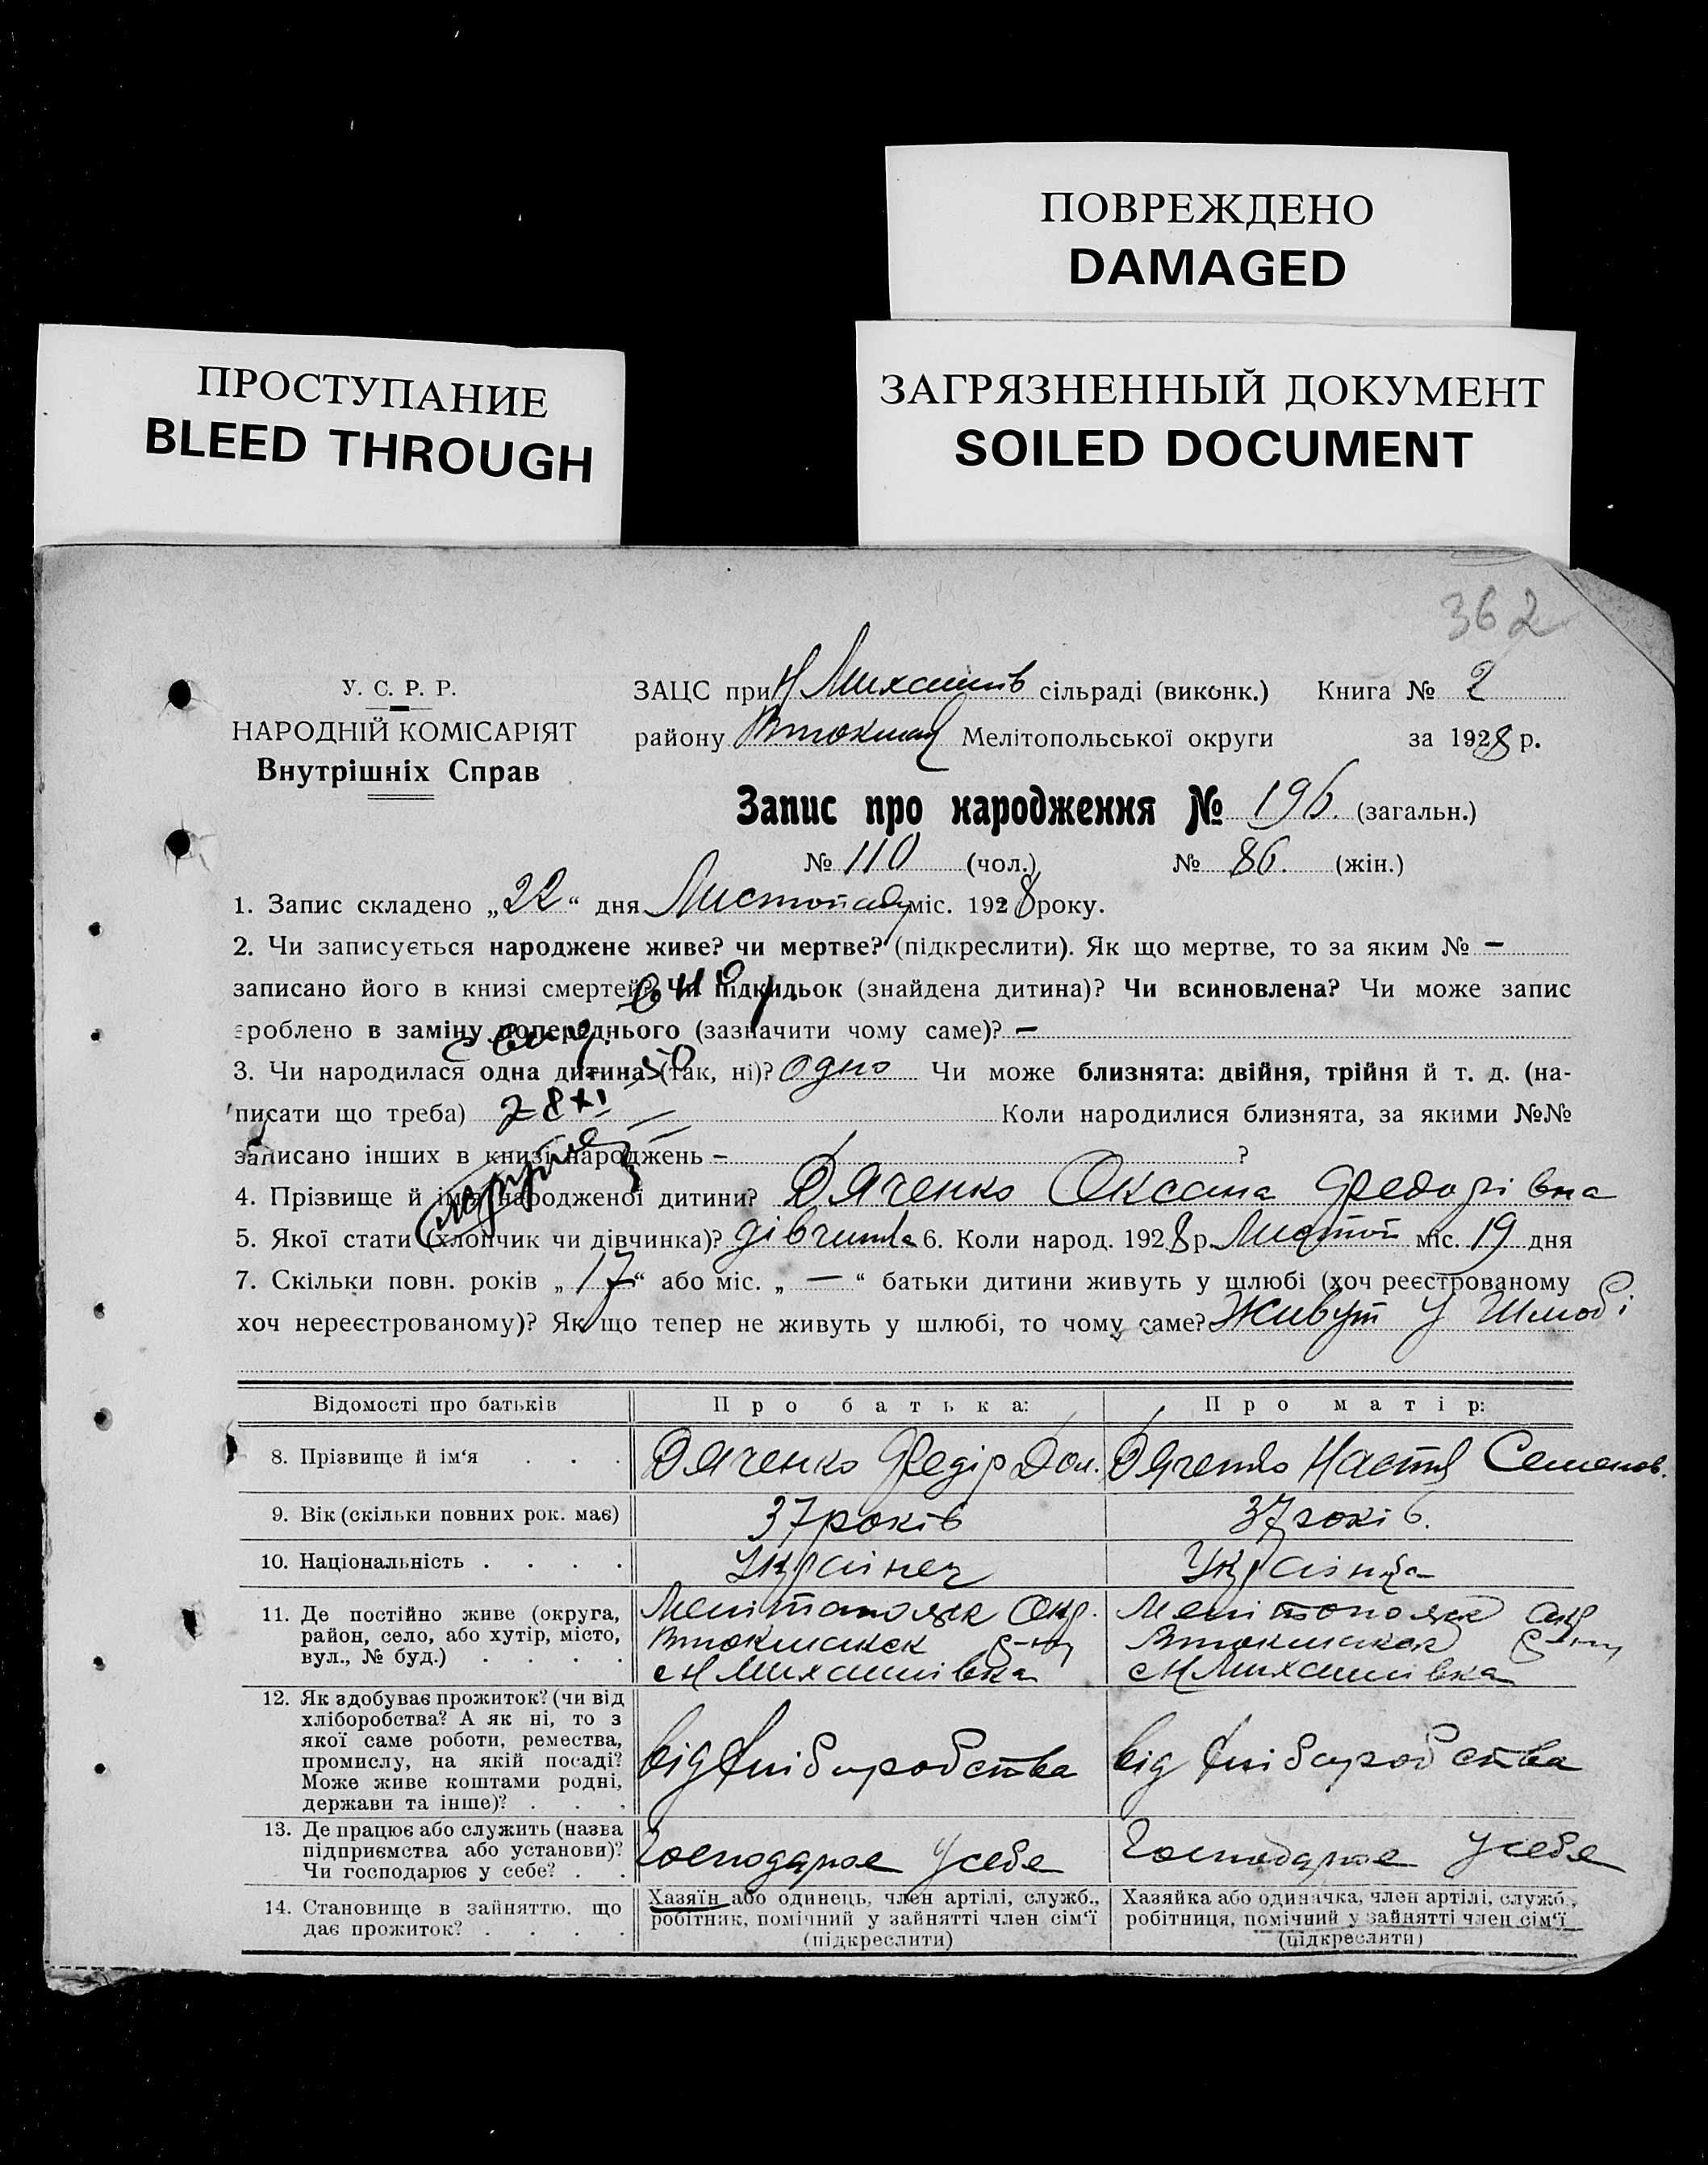 ПОВРЕЖДЕНО
DAMAGED
ПРОСТУПАНИЕ
BLEED THROUGH
ЗАГРЯЗНЕННЫЙ ДОКУМЕНТ
SOILED DOCUMENT
362
У. С. Р. Р.
НАРОДНІЙ КОМІСАРІЯТ
Внутрішніх Справ
ЗАЦС при Н Михайлів сільраді (виконк.) Книга № 2
району Втокмац Мелітопольської округи за 1928 р.
Запис про народження № 196. (загальн.)
№ 110 (чол.) № 86. (жін.)
1. Запис складено „22“ дня Листопаду міс. 1928 року.
2. Чи записується народжене живе? чи мертве? (підкреслити). Як що мертве, то за яким № —
записано його в книзі смертей? Чи підкидьок (знайдена дитина)? Чи всиновлена? Чи може запис
зроблено в заміну попереднього (зазначити чому саме)? —
3. Чи народилася одна дитина (так, ні)? одно Чи може близнята: двійня, трійня й т. д. (на-
писати що треба) Коли народилися близнята, за якими №№
записано інших в книзі народжень — ?
4. Прізвище й ім'я народженої дитини? Дяченко Оксана Федорівна
5. Якої стати (хлопчик чи дівчинка)? дівчинка 6. Коли народ. 1928 р. Листоп міс. 19 дня
7. Скільки повн. років „17“ або міс. „—“ батьки дитини живуть у шлюбі (хоч реєстрованому
хоч нереєстрованому)? Як що тепер не живуть у шлюбі, то чому саме? Живут у Шлюбі
Відомості про батьків Про батька: Про матір:
8. Прізвище й ім'я . . . Дяченко Федір Дем. Дяченко Настя Семенов.
9. Вік (скільки повних рок. має) 37 років 37 років.
10. Національність . . . . Українец Українка
11. Де постійно живе (округа, Мелітопольск Окр. Мелітопольск Окр
район, село, або хутір, місто, Втокмакск р-ну Втокмакск р-ну
вул., № буд.) . . . . с Н Михайлівка с Н Михайлівка
12. Як здобуває прожиток? (чи від
хліборобства? А як ні, то з
якої саме роботи, ремества,
промислу, на якій посаді? від хліборобства від хліборобства
Може живе коштами родні,
держави та інше)? . . .
13. Де працює або служить (назва
підприємства або установи)? Господарює у себе Господарює у себе
Чи господарює у себе? . .
14. Становище в зайняттю, що Хазяїн або одинець, член артілі, служб., Хазяйка або одиначка, член артілі, служб.,
дає прожиток? . . . . робітник, помічний у зайнятті член сім'ї робітниця, помічний у зайнятті член сім'ї
(підкреслити) (підкреслити)